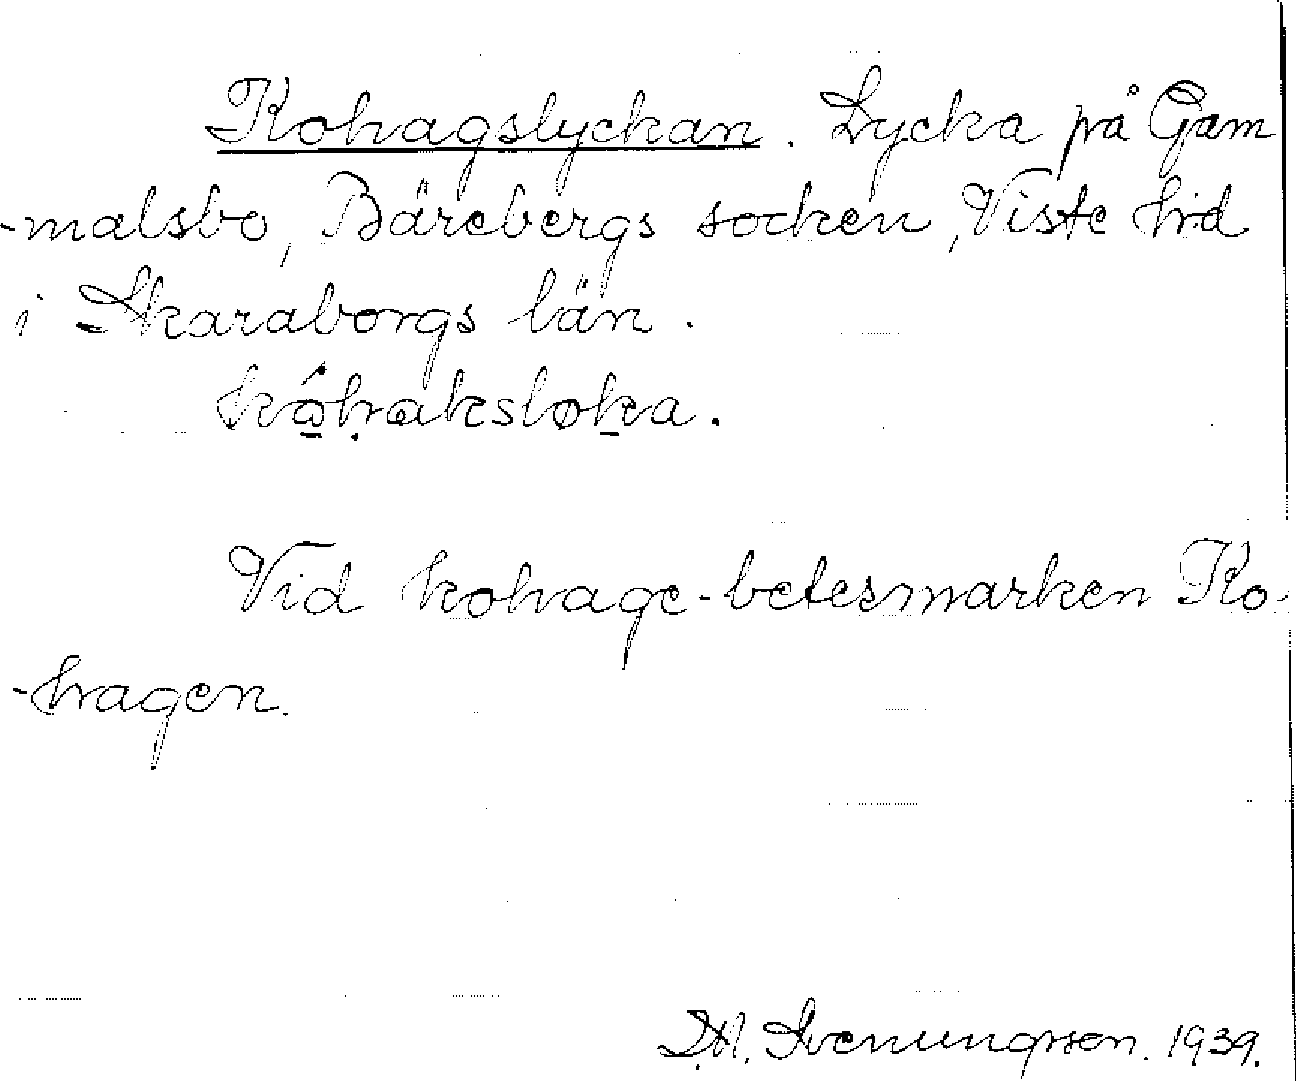 Kohagslyckan. Lycka på Gam
-malsbo, Bärebergs socken, Viste hd
i Skaraborgs län.
Vid kohage-betesmarken Ko-
-hagen.
Svenungsson. 1939.